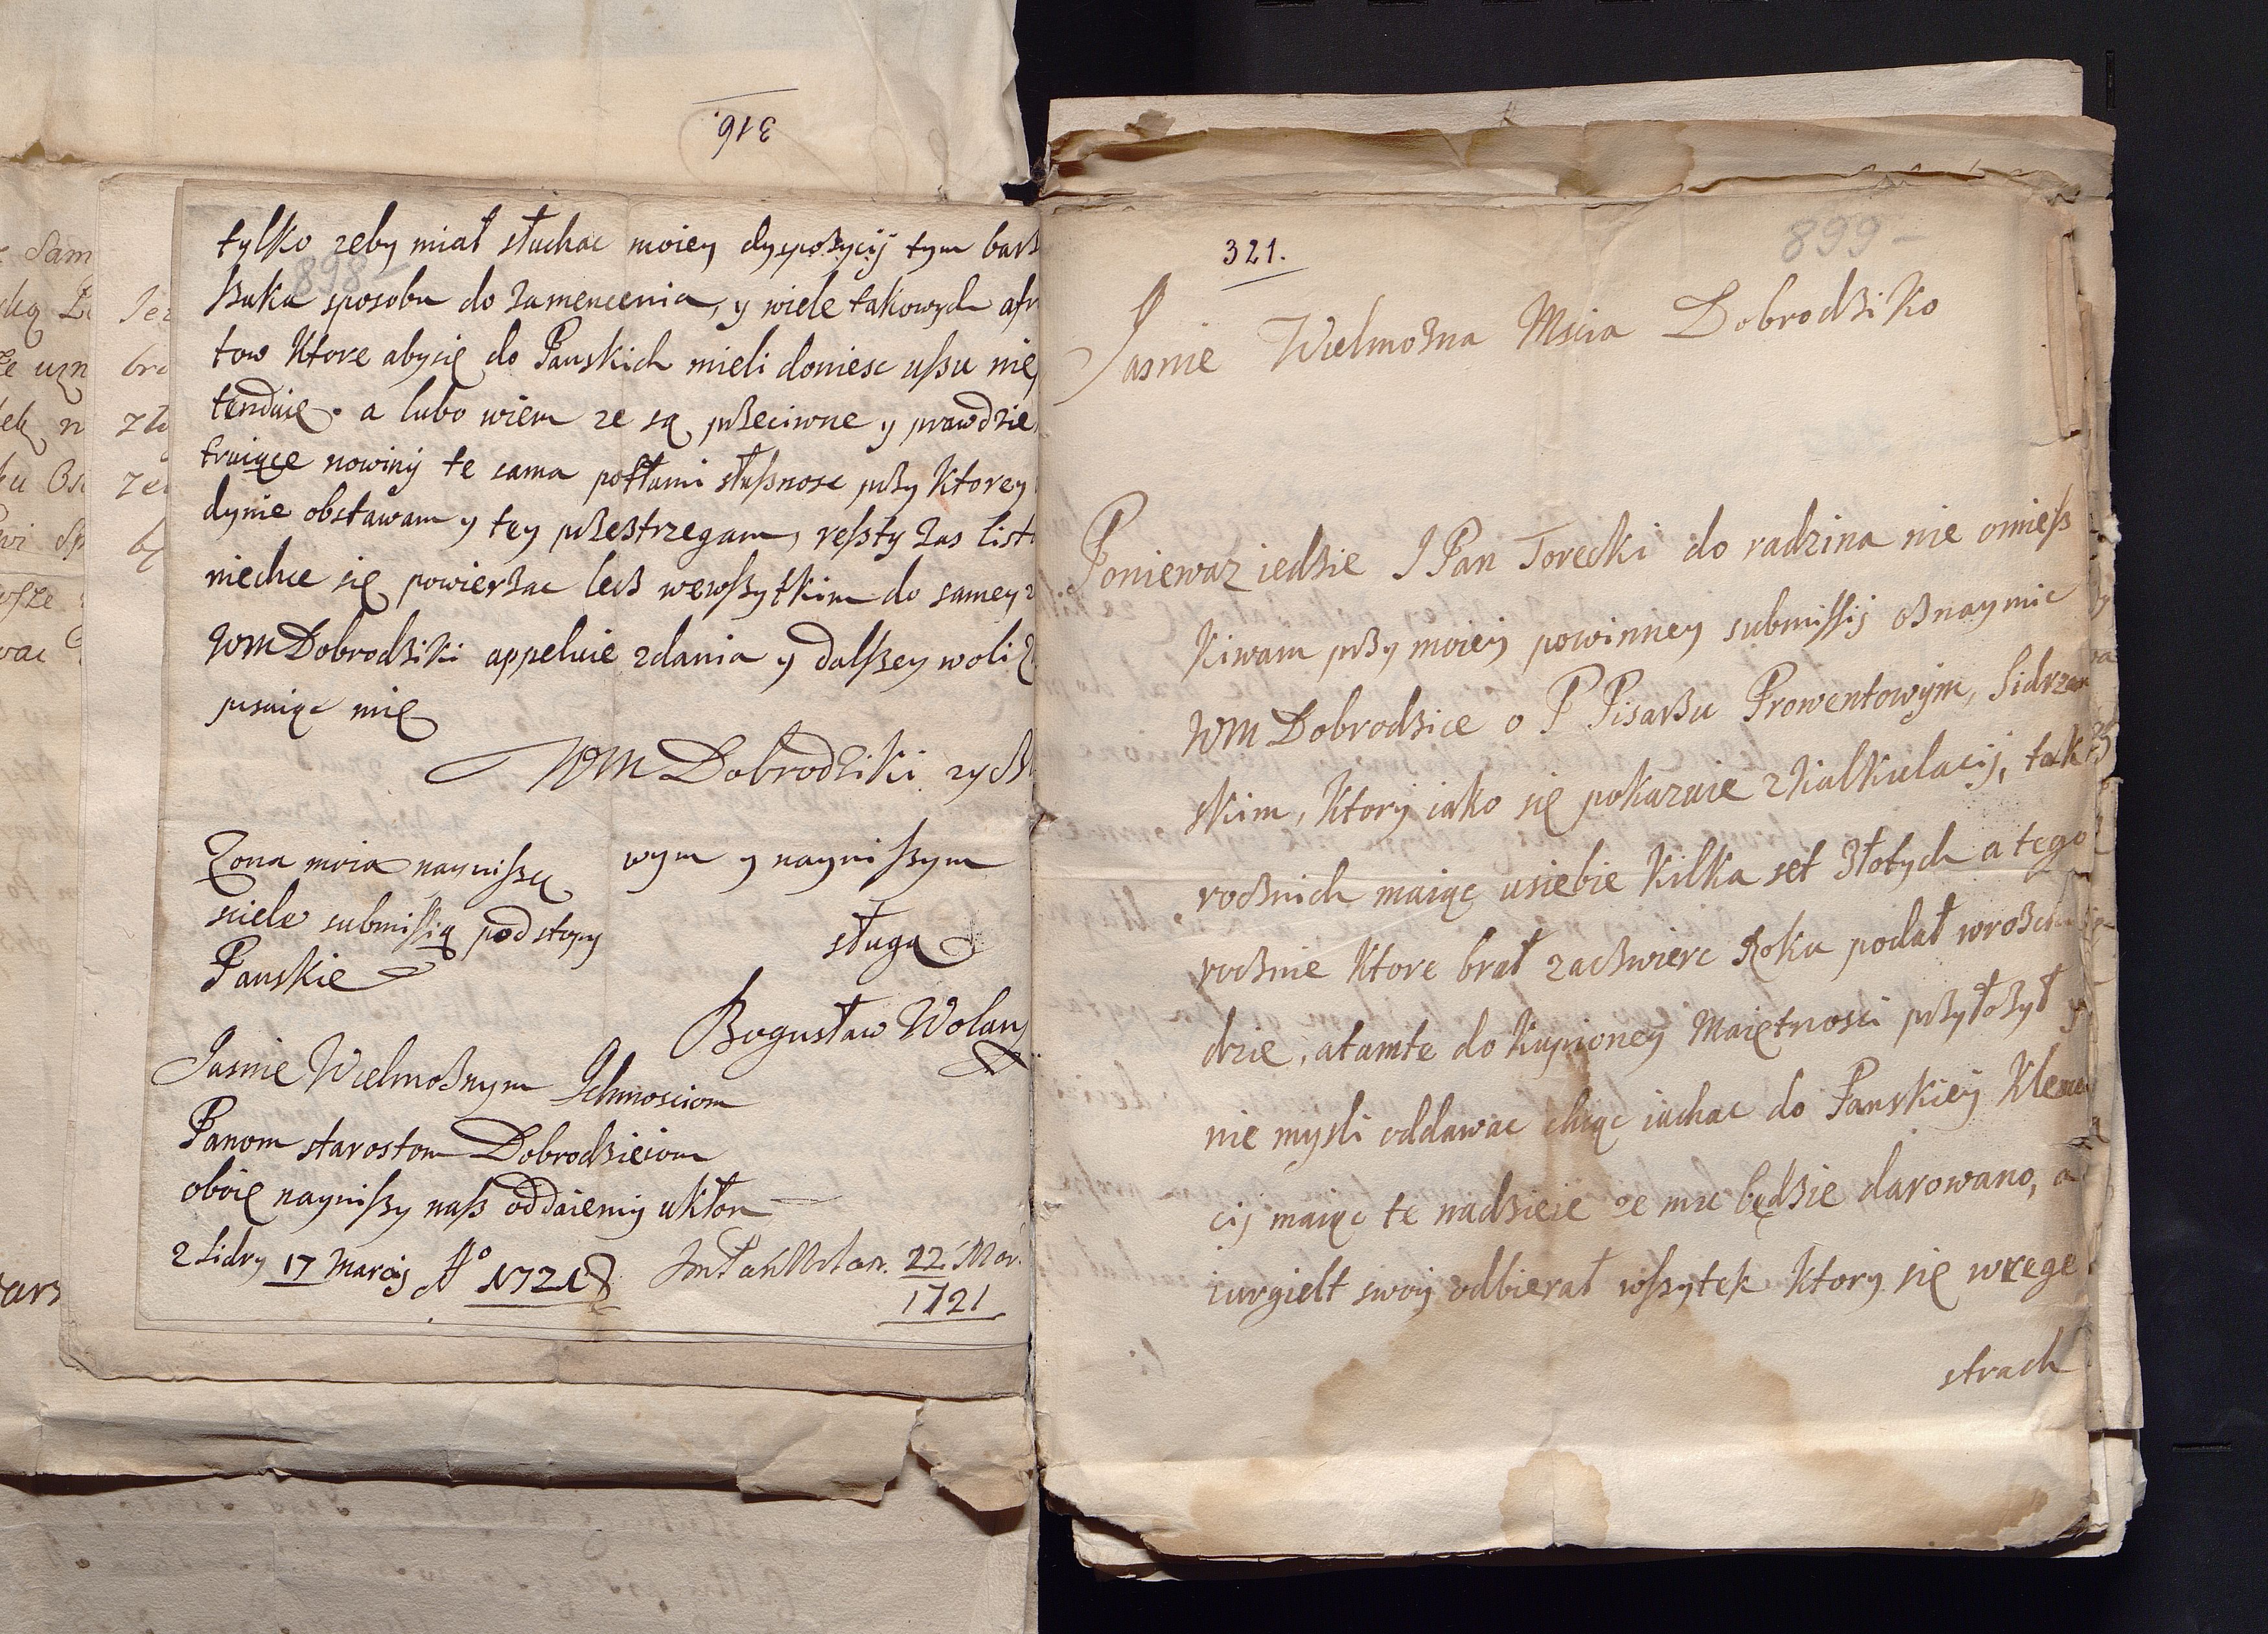 316.
898
tylko zeby miał słuchac moiey dyspoßycij tym barß
ßuka sposobu do zamencenia, y wiele takowych afr
tow Ktore abysię do Panskich mieli doniesc ußu nie
tenduię. a lubo wiem ze są pßeciwne y prawdzie
truiące nowiny te sama słußnosc pßy Ktorey
dynie obstawam y tey pßestrzegam, reßty zas list
niechce się powierßac lecß wewßytkim do samey
WM Dobrodßiki appeluie zdania y dalßey woli
pisuiąc mię
WM Dobrodziki zycß
wym y naynißym
sługa
Bogusław Wolan
Zona moia nayniße
sciele submissią pod stopy
Panskie
Jasnie Wielmoßnym Ichmosciom
Panom starostom Dobrodßieiom
oboie nayniβy naß oddaiemy ukłon
z Sidry 17 Marcij Ao 1721
22 Mar.
1721
321.
899
Jasnie Wielmoßna Mscia Dobrodßiko
Poniewaz iedßie I Pan Torecki do radzina nie omieß
kiwam pßy moiey powinney submissij oßnaymic
WM Dobrodßice o P Pisarßu Prowentowym, Sidrzan
skim, Ktory iako się pokazuie z Kalkulacij, tak
rocßnich maiąc usiebie Kilka set Złotych a tego
rocßnie Ktore brał zacßwierc Roku podał
drie, atamte do Kupioney Maiętnosci pßyłoßył y
nie mysli oddawac chcąc iachac do Panskiey Kleme
cij maiąc te nadßieie ze mu będßie darowano, a
iurgielt swoy odbierał wßytek Ktory się wrege
strach